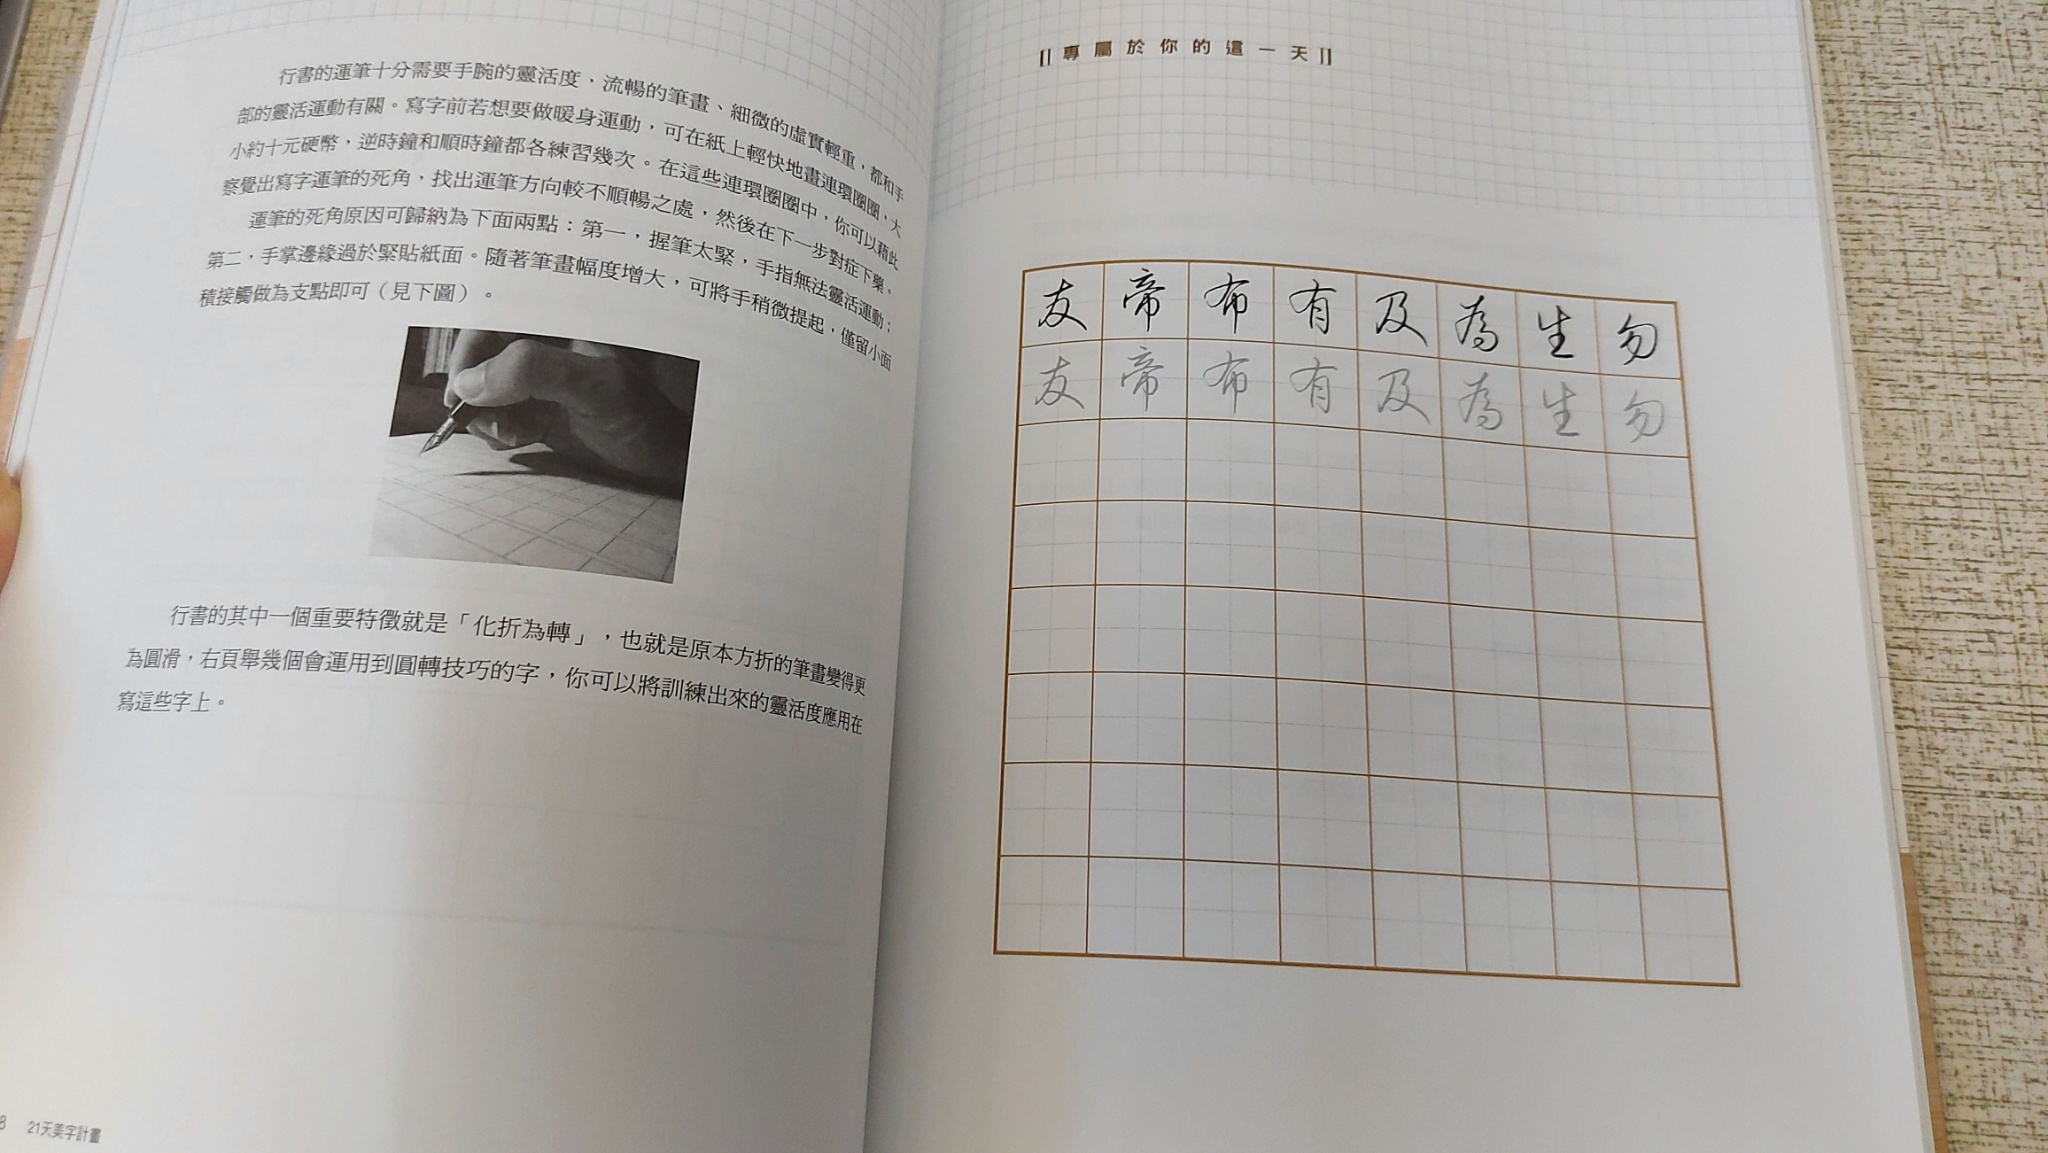 行書的運筆十分需要手腕的靈活度，流暢的筆畫、細微的虛實輕重，都和手
部的靈活運動有關。寫字前若想要做暖身運動，可在紙上輕快地畫連環圈圈，大
小約十元硬幣，逆時鐘和順時鐘都各練習幾次。在這些連環圈圈中，你可以藉此
察覺出寫字運筆的死角，找出運筆方向較不順暢之處，然後在下一步對症下藥。
運筆的死角原因可歸納為下面兩點：第一，握筆太緊，手指無法靈活運動；
第二，手掌邊緣過於緊貼紙面。隨著筆畫幅度增大，可將手稍微提起，僅留小面
積接觸做為支點即可（見下圖）。
行書的其中一個重要特徵就是「化折為轉」，也就是原本方折的筆畫變得更
為圓滑，右頁舉幾個會運用到圓轉技巧的字，你可以將訓練出來的靈活度應用在
寫這些字上。
8 21天美字計畫
專屬於你的這一天
友帝布有及為生勿
友帝布有及為生勿